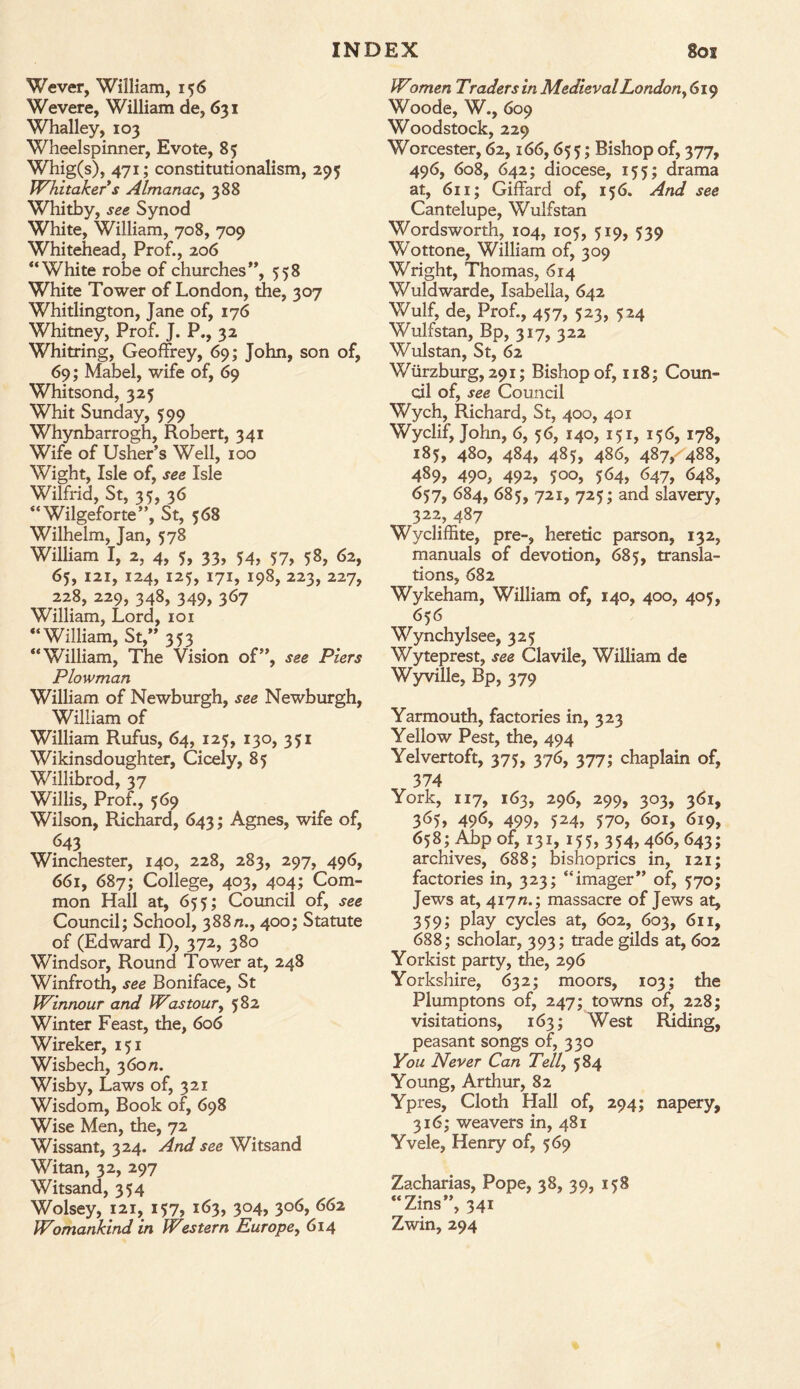 INDEX 801
Wever, William, 156
Wevere, William de, 631
Whalley, 103
Wheelspinner, Evote, 85
Whig(s), 471; constitutionalism, 295
Whitaker's Almanac, 388
Whitby, see Synod
White, William, 708, 709
Whitehead, Prof., 206
“White robe of churches”, 558
White Tower of London, the, 307
Whitlington, Jane of, 176
Whitney, Prof. J. P., 32
Whitring, Geoffrey, 69; John, son of,
69; Mabel, wife of, 69
Whitsond, 325
Whit Sunday, 599
Whynbarrogh, Robert, 341
Wife of Usher's Well, 100
Wight, Isle of, see Isle
Wilfrid, St, 35, 36
“Wilgeforte”, St, 568
Wilhelm, Jan, 578
William I, 2, 4, 5, 33, 54, 57, 58, 62,
65, 121, 124, 125, 171, 198, 223, 227,
228, 229, 348, 349, 367
William, Lord, 101
“William, St,” 353
“William, The Vision of”, see Piers
Plowman
William of Newburgh, see Newburgh,
William of
William Rufus, 64, 125, 130, 351
Wikinsdoughter, Cicely, 85
Willibrod, 37
Willis, Prof., 569
Wilson, Richard, 643; Agnes, wife of,
643
Winchester, 140, 228, 283, 297, 496,
661, 687; College, 403, 404; Com-
mon Hall at, 655; Council of, see
Council; School, 388n., 400; Statute
of (Edward I), 372, 380
Windsor, Round Tower at, 248
Winfroth, see Boniface, St
Winnour and Wastour, 582
Winter Feast, the, 606
Wireker, 151
Wisbech, 360n.
Wisby, Laws of, 321
Wisdom, Book of, 698
Wise Men, the, 72
Wissant, 324. And see Witsand
Witan, 32, 297
Witsand, 354
Wolsey, 121, 157, 163, 304, 306, 662
Womankind in Western Europe, 614
Women Traders in Medieval London, 619
Woode, W., 609
Woodstock, 229
Worcester, 62, 166, 655; Bishop of, 377,
496, 608, 642; diocese, 155; drama
at, 611; Giffard of, 156. And see
Cantelupe, Wulfstan
Wordsworth, 104, 105, 519, 539
Wottone, William of, 309
Wright, Thomas, 614
Wuldwarde, Isabella, 642
Wulf, de, Prof., 457, 523, 524
Wulfstan, Bp, 317, 322
Wulstan, St, 62
Würzburg, 291; Bishop of, 118; Coun-
cil of, see Council
Wych, Richard, St, 400, 401
Wyclif, John, 6, 56, 140, 151, 156, 178,
185, 480, 484, 485, 486, 487, 488,
489, 490, 492, 500, 564, 647, 648,
657, 684, 685, 721, 725; and slavery,
322, 487
Wycliffite, pre-, heretic parson, 132,
manuals of devotion, 685, transla-
tions, 682
Wykeham, William of, 140, 400, 405,
656
Wynchylsee, 325
Wyteprest, see Clavile, William de
Wyville, Bp, 379
Yarmouth, factories in, 323
Yellow Pest, the, 494
Yelvertoft, 375, 376, 377; chaplain of,
374
York, 117, 163, 296, 299, 303, 361,
365, 496, 499, 524, 570, 601, 619,
658; Abp of, 131, 155, 354, 466, 643;
archives, 688; bishoprics in, 121;
factories in, 323; “imager” of, 570;
Jews at, 417n.; massacre of Jews at,
359; play cycles at, 602, 603, 611,
688; scholar, 393; trade gilds at, 602
Yorkist party, the, 296
Yorkshire, 632; moors, 103; the
Plumptons of, 247; towns of, 228;
visitations, 163; West Riding,
peasant songs of, 330
You Never Can Tell, 584
Young, Arthur, 82
Ypres, Cloth Hall of, 294; napery,
316; weavers in, 481
Yvele, Henry of, 569
Zacharias, Pope, 38, 39, 158
“Zins”, 341
Zwin, 294